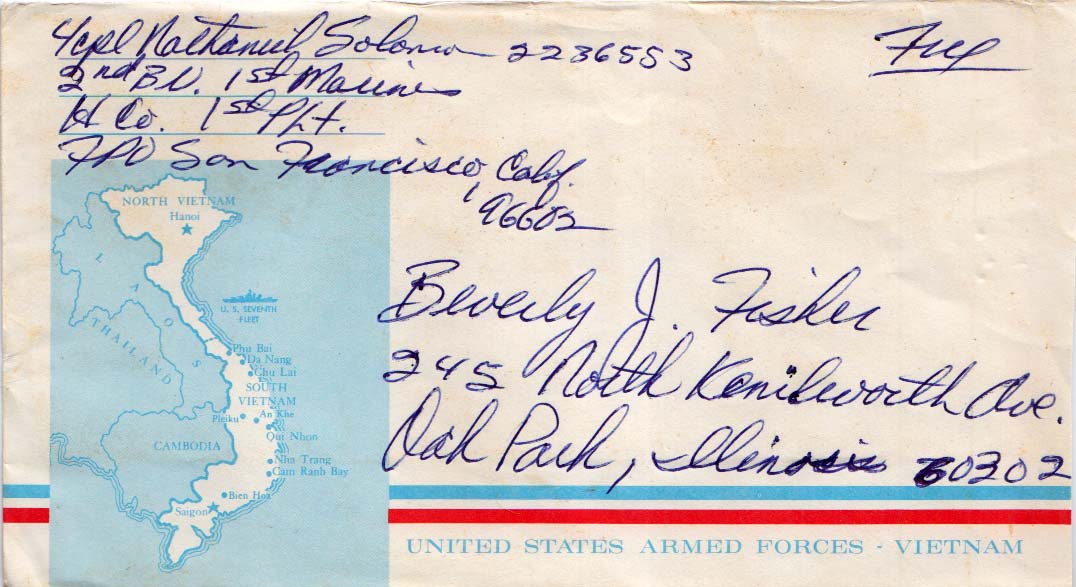 Lcpl Nathaniel Solomon 2236553
Free
2nd Bn. 1st Marines
H Co. 1st Plt.
FPO San Francisco, Calif.
96602
Beverly J. Fisher
245 North Kenilworth Ave.
Oak Park, Illinois 60302
NORTH VIETNAM
Hanoi
LAOS
THAILAND
U. S. SEVENTH
FLEET
Phu Bai
Da Nang
Chu Lai
SOUTH
VIETNAM
Pleiku
An Khe
Qui Nhon
CAMBODIA
Nha Trang
Cam Ranh Bay
Bien Hoa
Saigon
UNITED STATES ARMED FORCES - VIETNAM